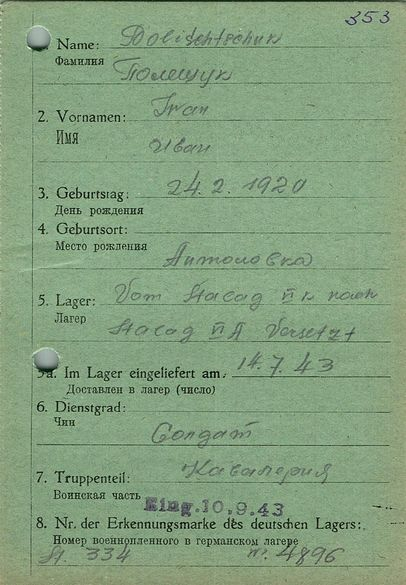 353
Name: Polischtschuk
Фамилия
Полещук
2. Vornamen: Iwan
Имя
Иван
3. Geburtstag: 24.2.1920
День рождения
4. Geburtsort:
Место рождения
Антоновка
5. Lager: Vom Stalag VI K nach
Лагер
Stalag VI A Versetzt
5a. Im Lager eingeliefert am: 14.7.43
Доставлен в лагер (число)
6. Dienstgrad:
Чин
Солдат
7. Truppenteil: Кавалерия
Воинская часть Eing. 10.9.43
8. Nr. der Erkennungsmarke des deutschen Lagers:
Номер военнопленного в германском лагере
St. 334 Nr. 4896